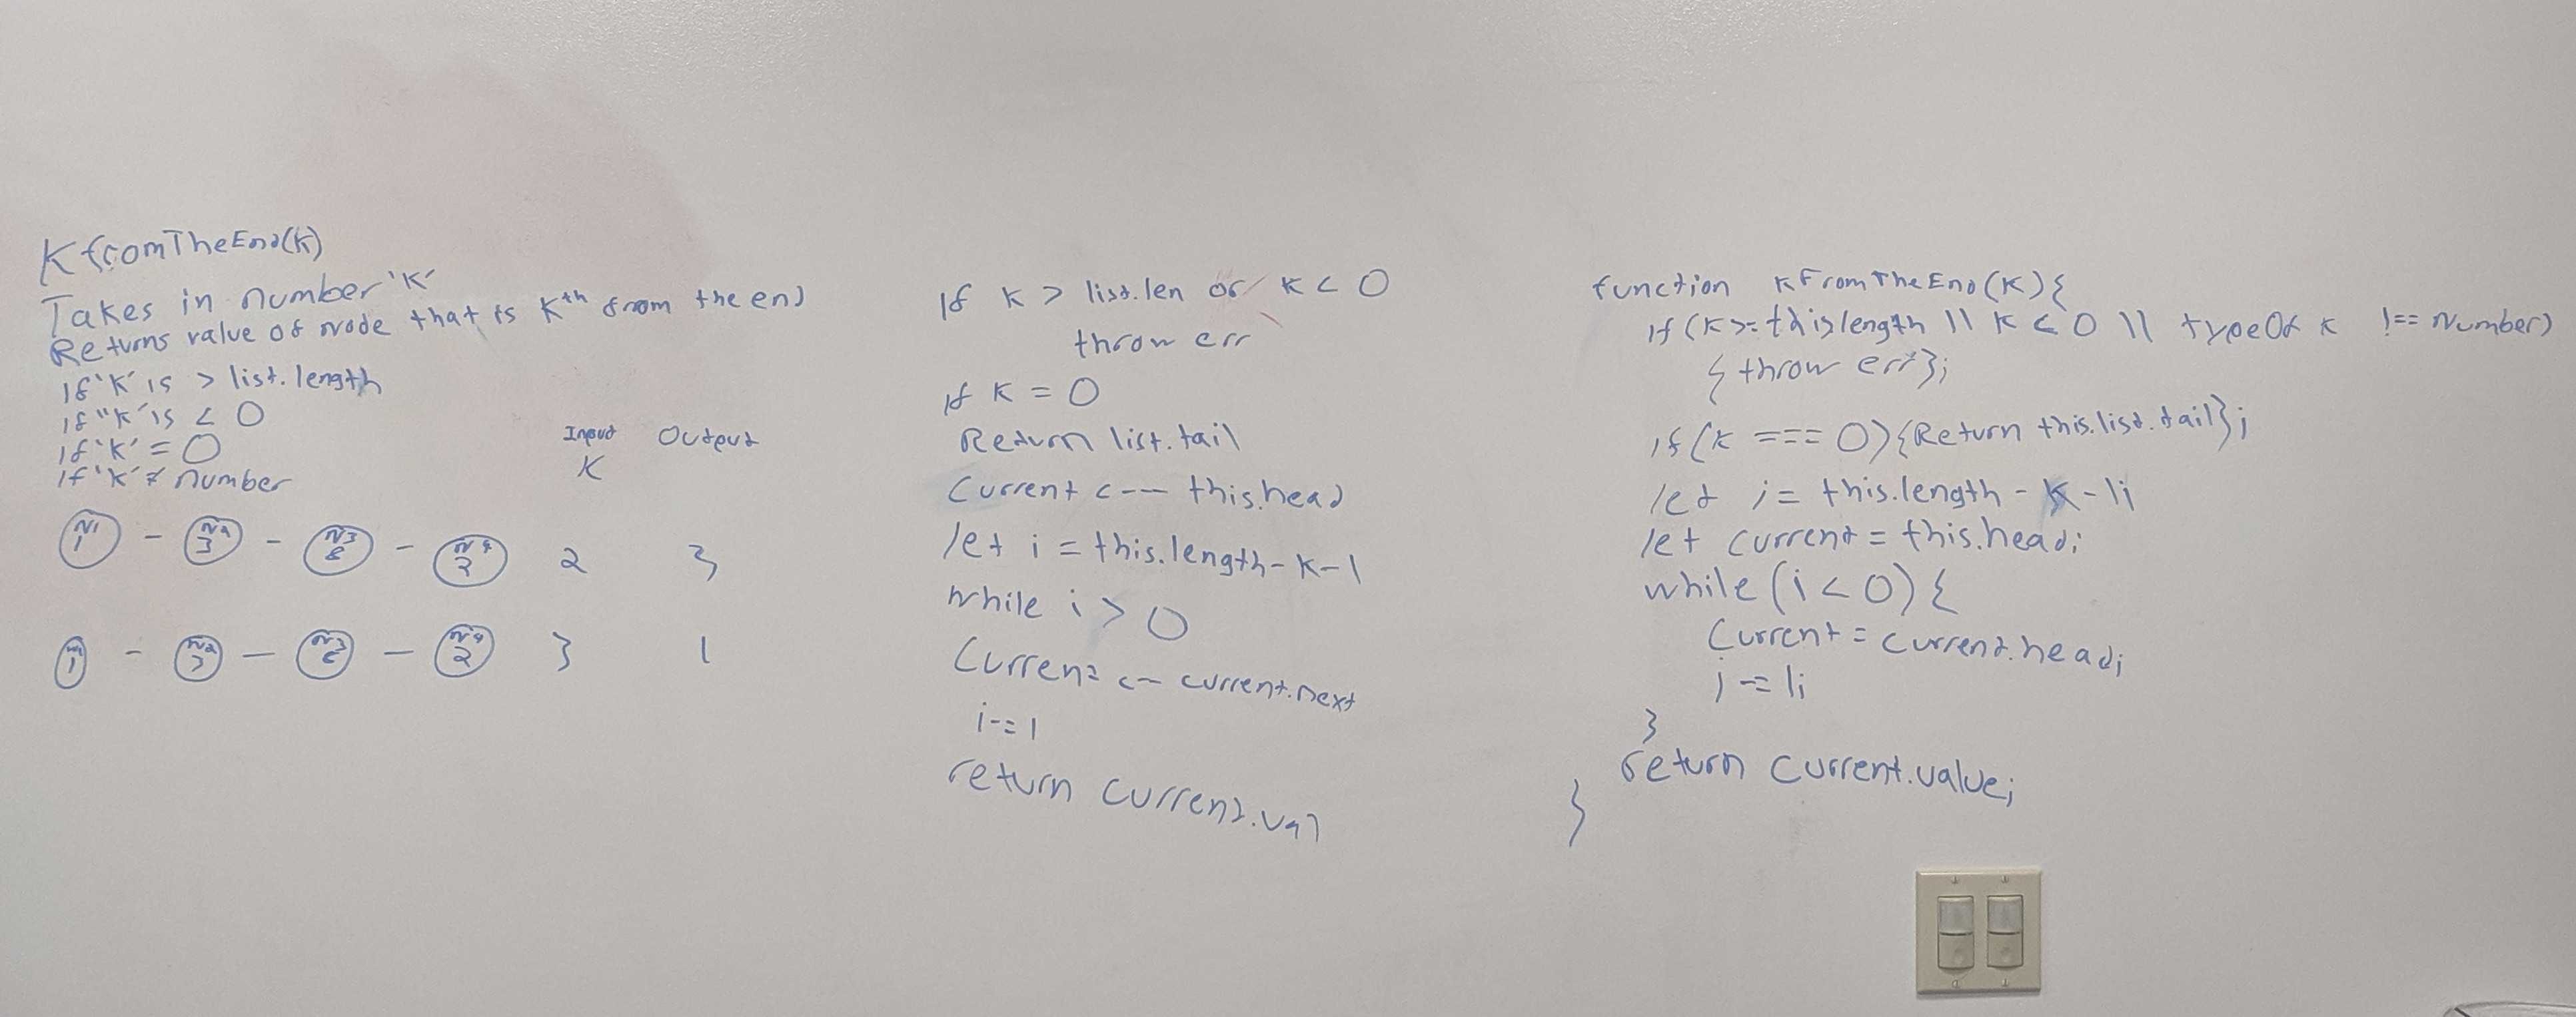 KfromTheEnd(K)
Takes in number 'K'
Returns value of node that is Kth from the end
If 'K' is > list.length
if "K' is < 0
if 'K' = 0
If 'K' ≠ number
Input Output
K
N1 - N2 - N3 - N4 2 3
1 3 8 2
N1 - N2 - N3 - N4 3 1
1 3 8 2
If K > list.len or K < 0
throw err
if K = 0
Return list.tail
Current <-- this.head
let i = this.length - K - 1
while i > 0
Current <- current.next
i -= 1
return current.val
function KFromTheEnd(K){
if (K >= this.length || K < 0 || typeOf K !== Number)
{ throw err};
if (K === 0){Return this.list.tail};
let i = this.length - K - 1;
let current = this.head;
while (i < 0) {
Current = current.head;
i -= 1;
}
return current.value;
}